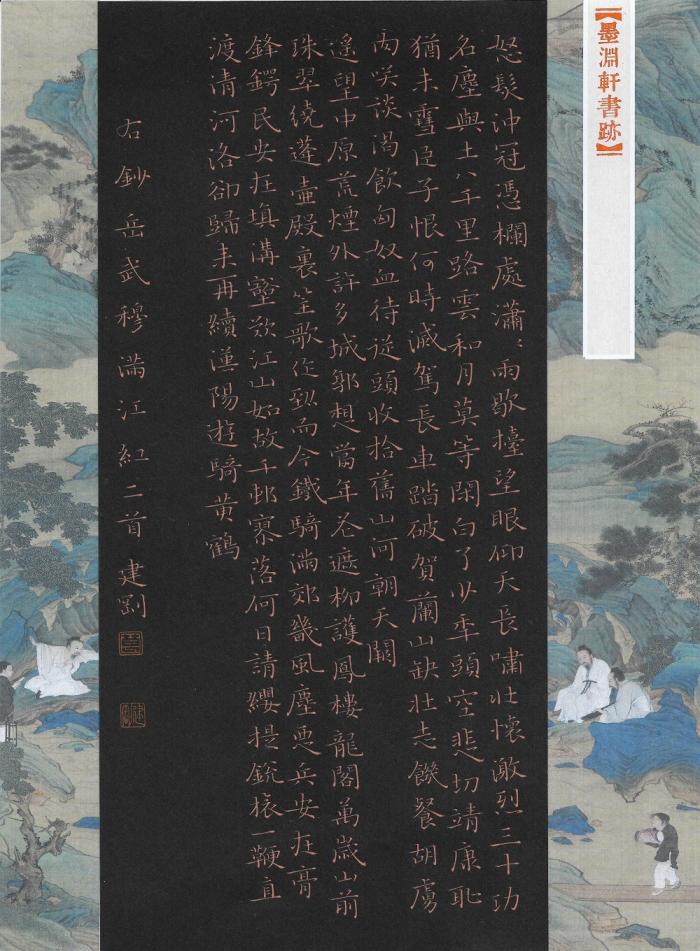 【墨淵軒書跡】
怒髮沖冠憑欄處瀟〻雨歇擡望眼仰天長嘯壯懷激烈三十功
名塵與土八千里路雲和月莫等閑白了少年頭空悲切靖康恥
猶未雪臣子恨何時滅駕長車踏破賀蘭山缺壯志饑餐胡虜
肉笑談渴飲匈奴血待從頭收拾舊山河朝天闕
遙望中原荒煙外許多城郭想當年花遮柳護鳳樓龍閣萬歲山前
珠翠繞蓬壺殿裏笙歌作到而今鐵騎滿郊畿風塵惡兵安在膏
鋒鍔民安在填溝壑歎江山如故千邨寥落何日請纓提銳旅一鞭直
渡清河洛卻歸來再續漢陽遊騎黃鶴
右鈔岳武穆滿江紅二首 建劉